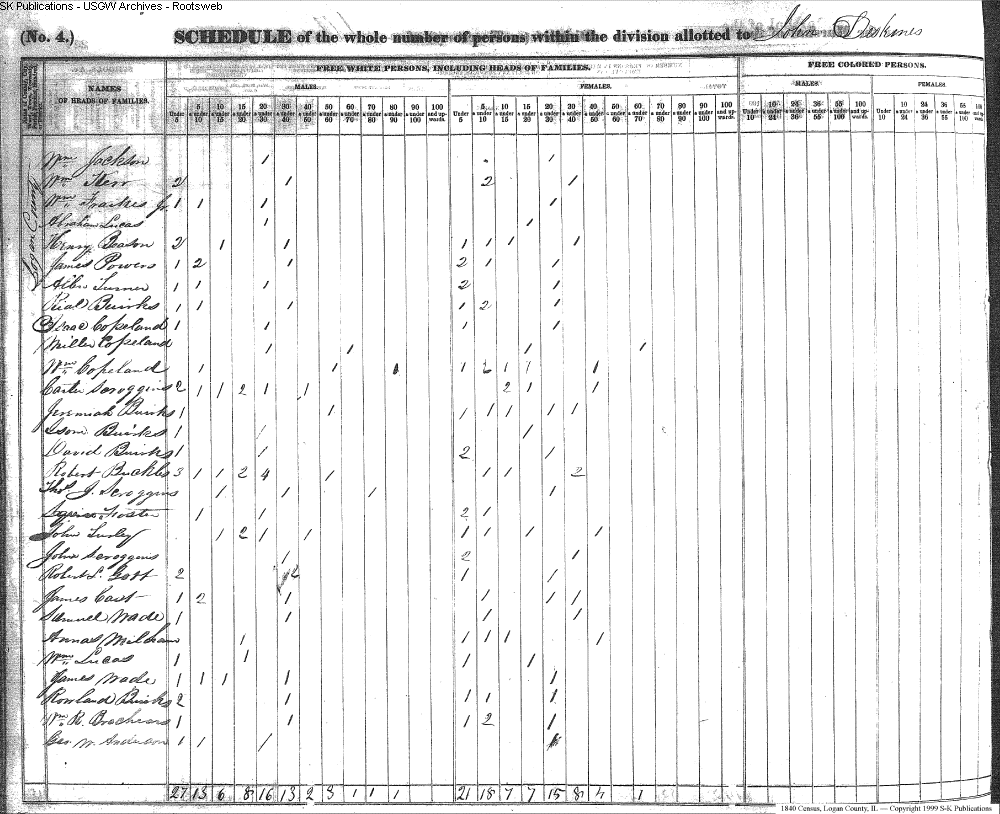 SK Publications - USGW Archives - Rootsweb
(No. 4.) SCHEDULE of the whole number of persons within the division allotted to John
FREE WHITE PERSONS, INCLUDING HEADS OF FAMILIES. FREE COLORED PERSONS.
NAMES OF HEADS OF FAMILIES. MALES. FEMALES. MALES. FEMALES.
Under 5 5 & under 10 10 & under 15 15 & under 20 20 & under 30 30 & under 40 40 & under 50 50 & under 60 60 & under 70 70 & under 80 80 & under 90 90 & under 100 100 and upwards. Under 5 5 & under 10 10 & under 15 15 & under 20 20 & under 30 30 & under 40 40 & under 50 50 & under 60 60 & under 70 70 & under 80 80 & under 90 90 & under 100 100 and upwards. Under 10 10 & under 24 24 & under 36 36 & under 55 55 & under 100 100 and upwards. Under 10 10 & under 24 24 & under 36 36 & under 55 55 & under 100 100 and upwards.
Logan County
Wm Jackson 1 1
Wm Kerr 2 1 2 1
Wm Fraikes Jr. 1 1 1 1
Abraham Lucas 1 1
Henry Beason 2 1 1 1 1 1 1
James Powers 1 2 1 2 1 1
Turner 1 1 1 2 1
Rial Buirks 1 1 1 1 2 1
Isaac Copeland 1 1 1 1
Miller Copeland 1 1 1 1
Wm Copeland 1 1 1 1 1 1 1
Carter Scroggins 2 1 1 2 1 1 2 1 1
Jeremiah Buirks 1 1 1 1 1 1 1
Isom Buirks 1 1 1
David Buirks 1 1 2 1
Robert Buckles 3 1 1 2 4 1 1 1 2
Thos J. Scroggins 1 1 1 1
Foster 1 1 2 1
John Turley 1 2 1 1 1 1 1 1
John Scroggins 1 2 1
Robert L. Gott 2 1 1
James Cart 1 2 1 1 1 1
Samuel Wade 1 1 1 1
Annas Milham 1 1 1 1 1
Wm Lucas 1 1 1 1
James Wade 1 1 1 1 1
Rowland Buirks 2 1 1 1 1
Wm R. Brachears 1 1 1 2 1
Geo. W. Anderson 1 1 1
27 13 6 8 16 13 2 3 1 1 1 21 18 7 7 15 8 4 1
1840 Census, Logan County, IL — Copyright 1999 S-K Publications